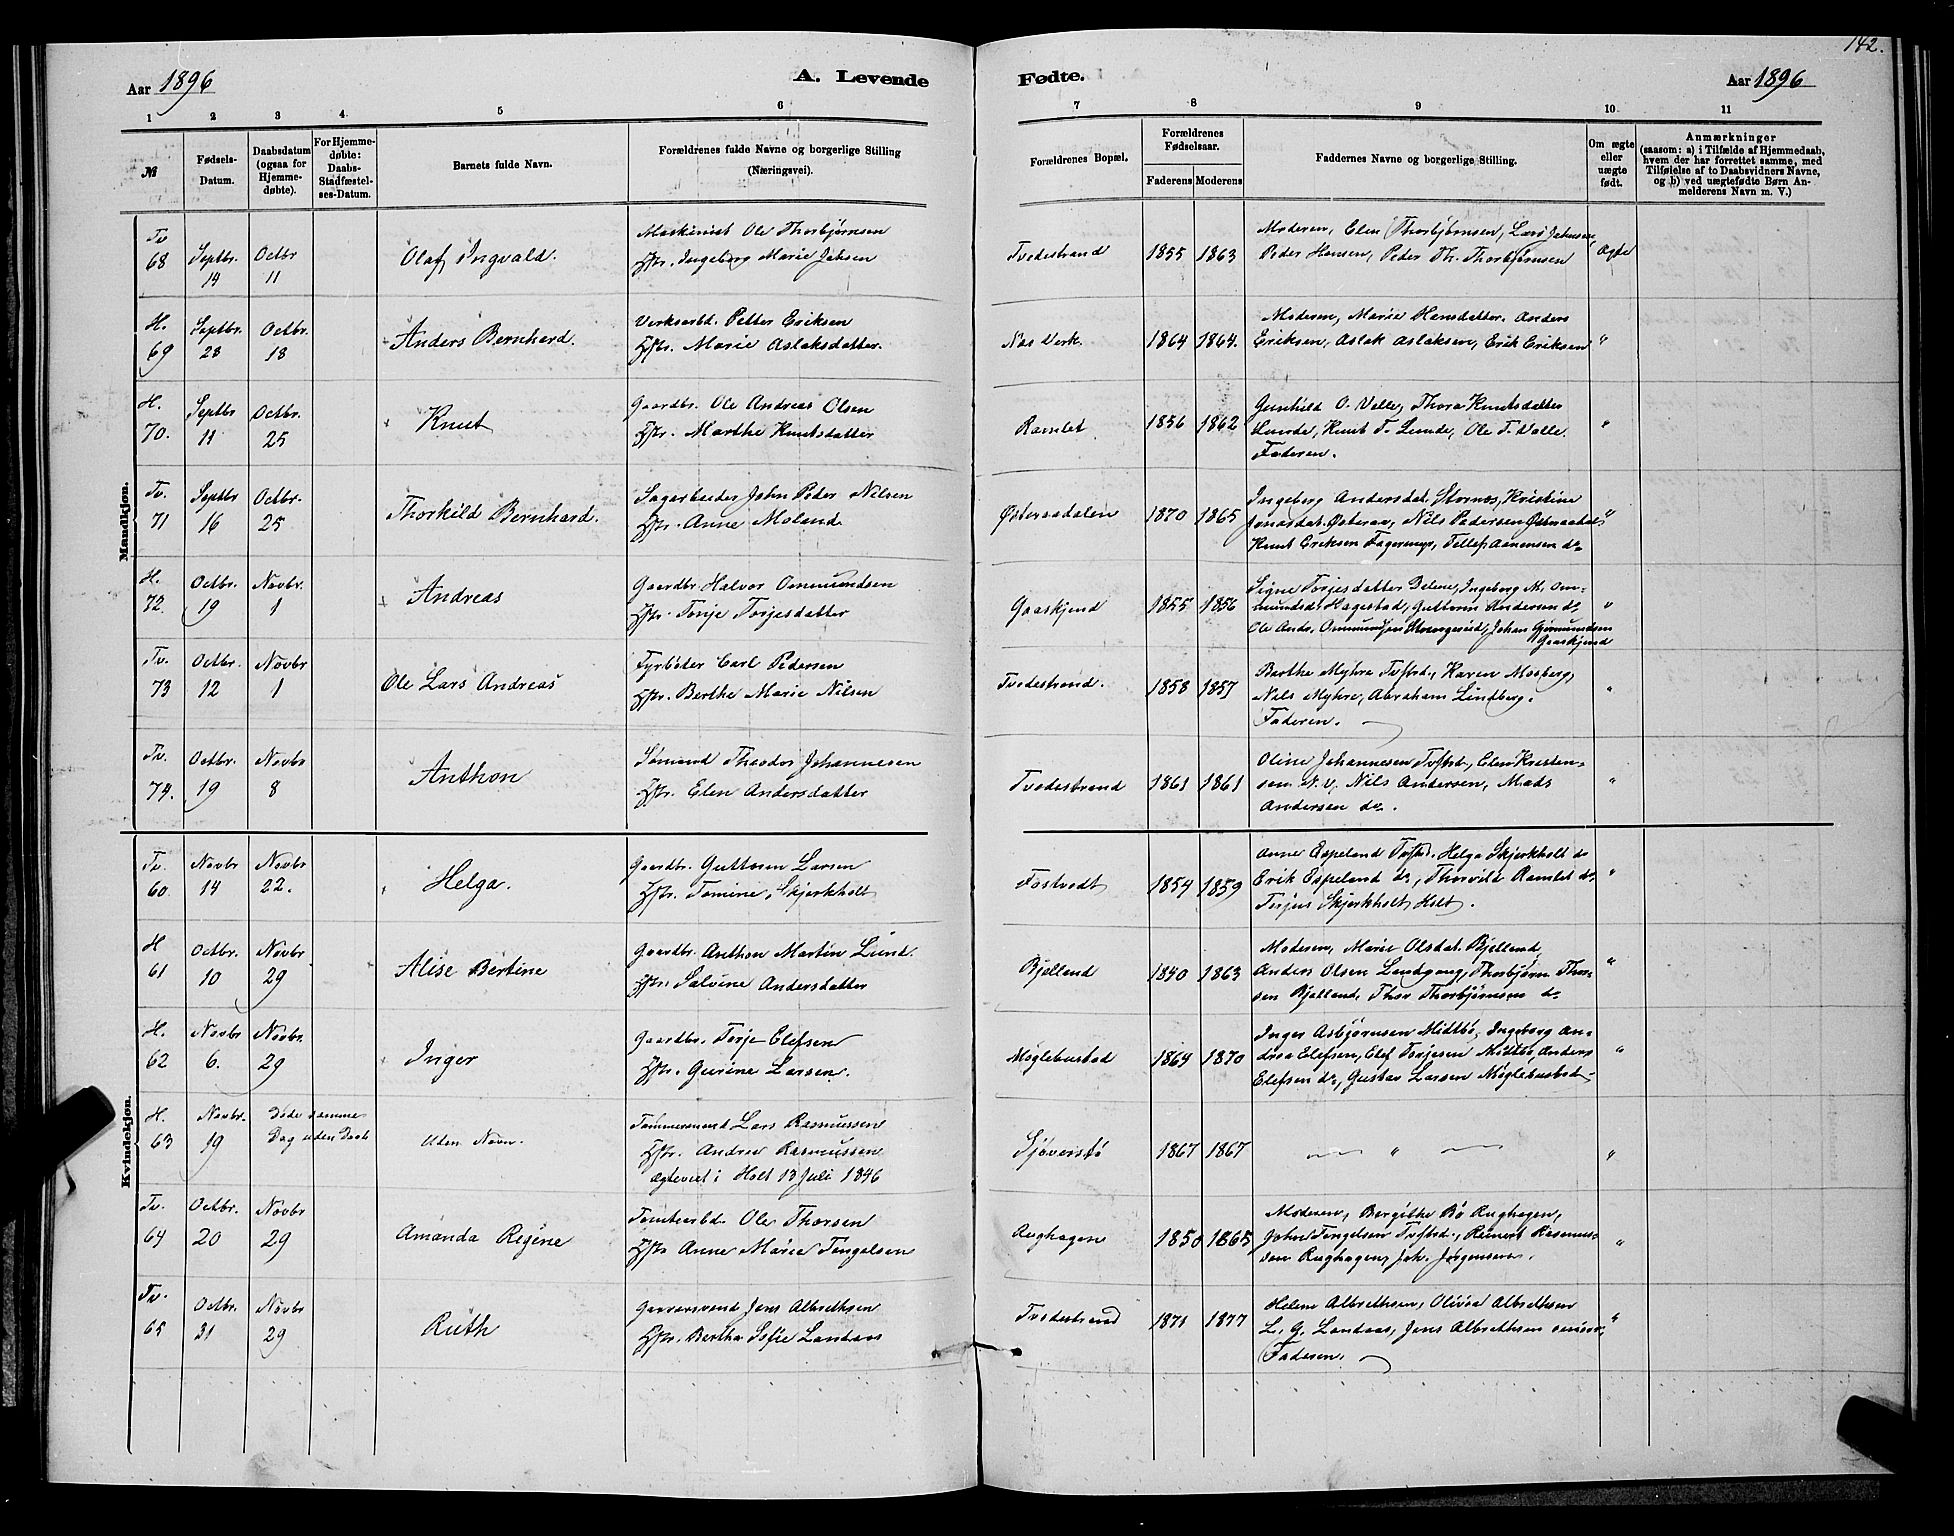 142.
Aar 1896
A. Levende Fødte.
Aar 1896
1 2 3 4 5 6 7 8 9 10 11
№
Fødsels-Datum.
Daabsdatum (ogsaa for Hjemmedøbte).
For Hjemmedøbte: Daabs-Stadfæstelses-Datum.
Barnets fulde Navn.
Forældrenes fulde Navne og borgerlige Stilling (Næringsvei).
Forældrenes Bopæl.
Forældrenes Fødselsaar.
Faderens Moderens
Faddernes Navne og borgerlige Stilling.
Om ægte eller uægte født.
Anmærkninger
(saasom: a) i Tilfælde af Hjemmedaab, hvem der har forrettet samme, med Tilføielse af to Daabsvidners Navne, og b) ved uægtefødte Børn Anmelderens Navn m. V.)
Mandkjøn.
Tv. 68 Septbr. 14 Octbr 11
Olaf Ingvald.
Maskinist Ole Thorbjørnsen
Hstr. Ingeborg Marie Jahsen
Tvedestrand 1855 1863
Moderen, Elen Thorbjørnsen, Lars Jahnsen,
Peder Hansen, Peder Th. Thorbjørnsen
Ægte
H. 69 Septbr. 28 Octbr. 18
Anders Bernhard.
Verksarbd. Petter Eriksen
Hstr. Marie Aslaksdatter.
Næs Verk. 1864 1864.
Moderen, Marie Hansdatter. Anders
Eriksen, Aslak Aslaksen, Erik Eriksen "
H. 70. Septbr 11 Octbr. 25
Knut
Gaardbr. Ole Andreas Olsen
Hstr. Marthe Knutsdatter
Ramlet 1856 1862
Gunhild O. Valle, Thora Knutsdatter
Lunde, Knut T. Lunde, Ole T. Valle.
Faderen. "
Tv. 71 Septbr 16 Octbr. 25
Thorkild Bernhard.
Sagarbeider John Peder Nilsen
Hstr. Anne Moland
Østeraadalen 1870 1865
Ingeberg Andersdat. Stornæs, Kristine
Jonasdat. Østeraa, Nils Pedersen Østeraadal "
Knut Eriksen Fagermyr, Tellef Aanensen do
H. 72. Octbr. 19 Novbr. 1
Andreas
Gaardbr. Halvor Ommundsen
Hstr. Tonje Torjesdatter
Gaaskjend 1855 1856
Signe Torjesdatter Ingeborg M. Om-
mundsd. Hagestad, Guttorm Andersen do "
Ole Andr. Ommundsen Johan Gjermundsen
Gaaskjend
Tv. 73 Octbr. 12 Novbr 1
Ole Lars Andreas
Fyrbøter Carl Pedersen
Hstr. Berthe Marie Nilsen
Tvedestrand. 1858 1857
Berthe Myhre Tvstrd., Karen Mosberg,
Nils Myhre, Abraham Lindberg.
Faderen. "
Tv. 74. Octbr. 19 Novbr 8
Anthon
Sømand Theodor Johannesen
Hstr. Elen Andersdatter
Tvedestrand 1861 1861
Oline Johannesen Tvstrd., Elen Kristen-
sen N. V, Nils Andersen, Mads
Andersen do. "
Kvindekjøn.
Tv. 60. Novbr 14 Novbr 22.
Helga.
Gaardbr. Guttorm Larsen
Hstr. Tomine Skjerkholt
Fostvedt 1854 1859
Anne Espeland Tvstrd. Helga Skjerkholt do
Erik Espeland do, Thorvild Ramlet do.
Terjus Skjerkholt Holt. "
H 61 Octbr. 10 Novbr 29
Alise Bertine
Gaardbr. Anthon Martin Lund.
Hstr. Salvine Andersdatter
Bjelland 1840 1863
Moderen, Marie Olsdat. Bjelland
Anders Olsen Landgang, Thorbjørn Thor-
sen Bjelland, Thor Thorbjørnsen do "
H. 62 Novbr 6. Novbr. 29
Inger
Gaardbr. Torje Elefsen
Hstr. Gurine Larsen.
Møglebustad 1864 1870
Inger Asbjørnsen Midtbø, Ingeborg An-
drea Elefsen, Elef Torjesen Midtbø, Anders
Elefsen do, Gustav Larsen Møglebustad "
H. 63 Novbr. 19
Døde samme
Dag uden Daab
Uden Navn.
Tømmermand Lars Rasmussen
Hstr. Andrea Rasmussen
Ægteviet i Holt 13 Juli 1896
Sjøverstø 1867 1867 " "
Tv. 64 Octbr. 20 Novbr 29
Amanda Regine
Tomtearbd. Ole Thorsen
Hstr Anne Marie Tengelsen
Rughagen 1850 1865
Moderen, Bergithe Bø Rughagen,
John Tengelsen Tvstrd., Reinert Rasmus-
sen Rughagen, Joh. Jørgensen. "
Tv. 65 Octbr. 31 Novbr 29
Ruth
Garversvend Jens Albrethsen
Hstr. Bertha Sofie Landaas
Tvedestrand 1871 1877
Helene Albrethsen, Olivia Albrethsen
L. G. Landaas, Jens Albrethsen senior, "
Faderen.